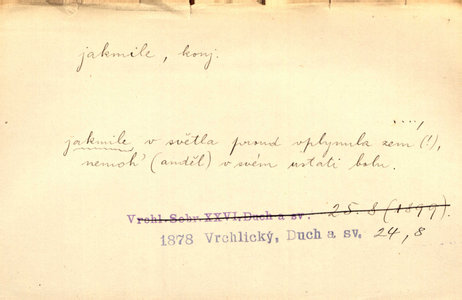 jakmile, konj.
....,
jakmile v světla proud vplynula zem (!),
nemoh' (anděl) v svém ustáti bolu.
Vrchl. Sebr. XXVI. Duch a sv. 25.8 (1899).
1878 Vrchlický, Duch a sv. 24,8